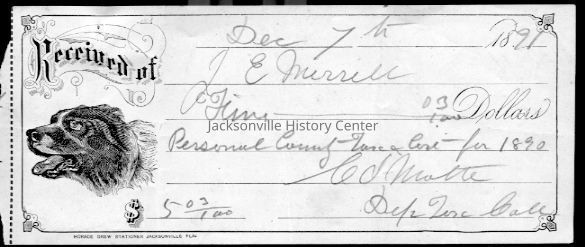 Dec 7th 1891
Received of J E Merrell
Five 03/100 Dollars
Jacksonville History Center
Personal County Tax & Cost for 1890
$ 5 03/100
Dep Tax Coll
HORACE DREW STATIONER JACKSONVILLE FLA.